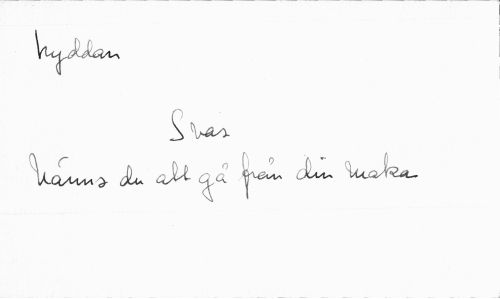 hyddan
Svar
Nänns du att gå från din maka